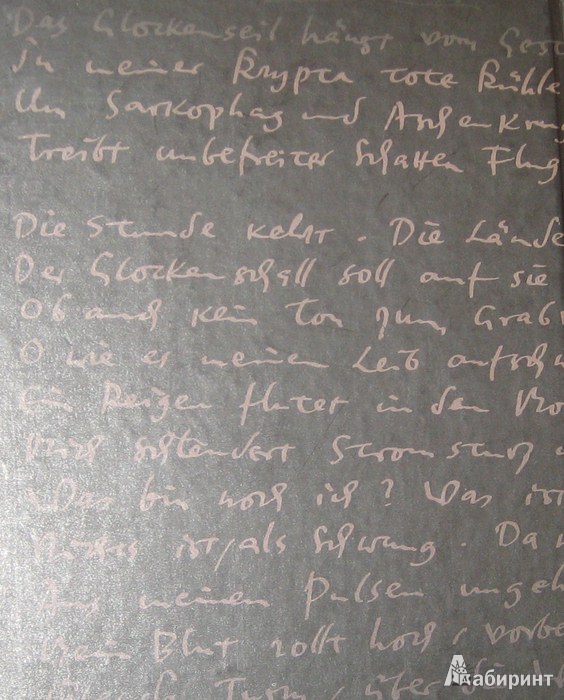 Das Glockenseil hängt vom
In meiner Krypta tote Kühle
Um Sarkophag und Aschenkrug
Treibt unbefreiter Schatten Flug
Die Stunde kehrt. Die Lände
Der Glockenschall soll auf sie
Ob auch kein Ton zum Grab
O wie er meinen Leib aufsch
Ein Reigen flutet in den
Mich schleudert Stromsturz
Das bin noch ich? Was ist
Nichts ist, als Schwung. Da
Aus meinen Pulsen ungeh
Mein Blut rollt hoch, vorbe
Лабиринт